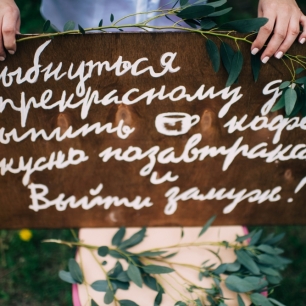 ыбнуться
прекрасному д
ыпить кофе
кусно позавтрака
и
Выйти замуж!